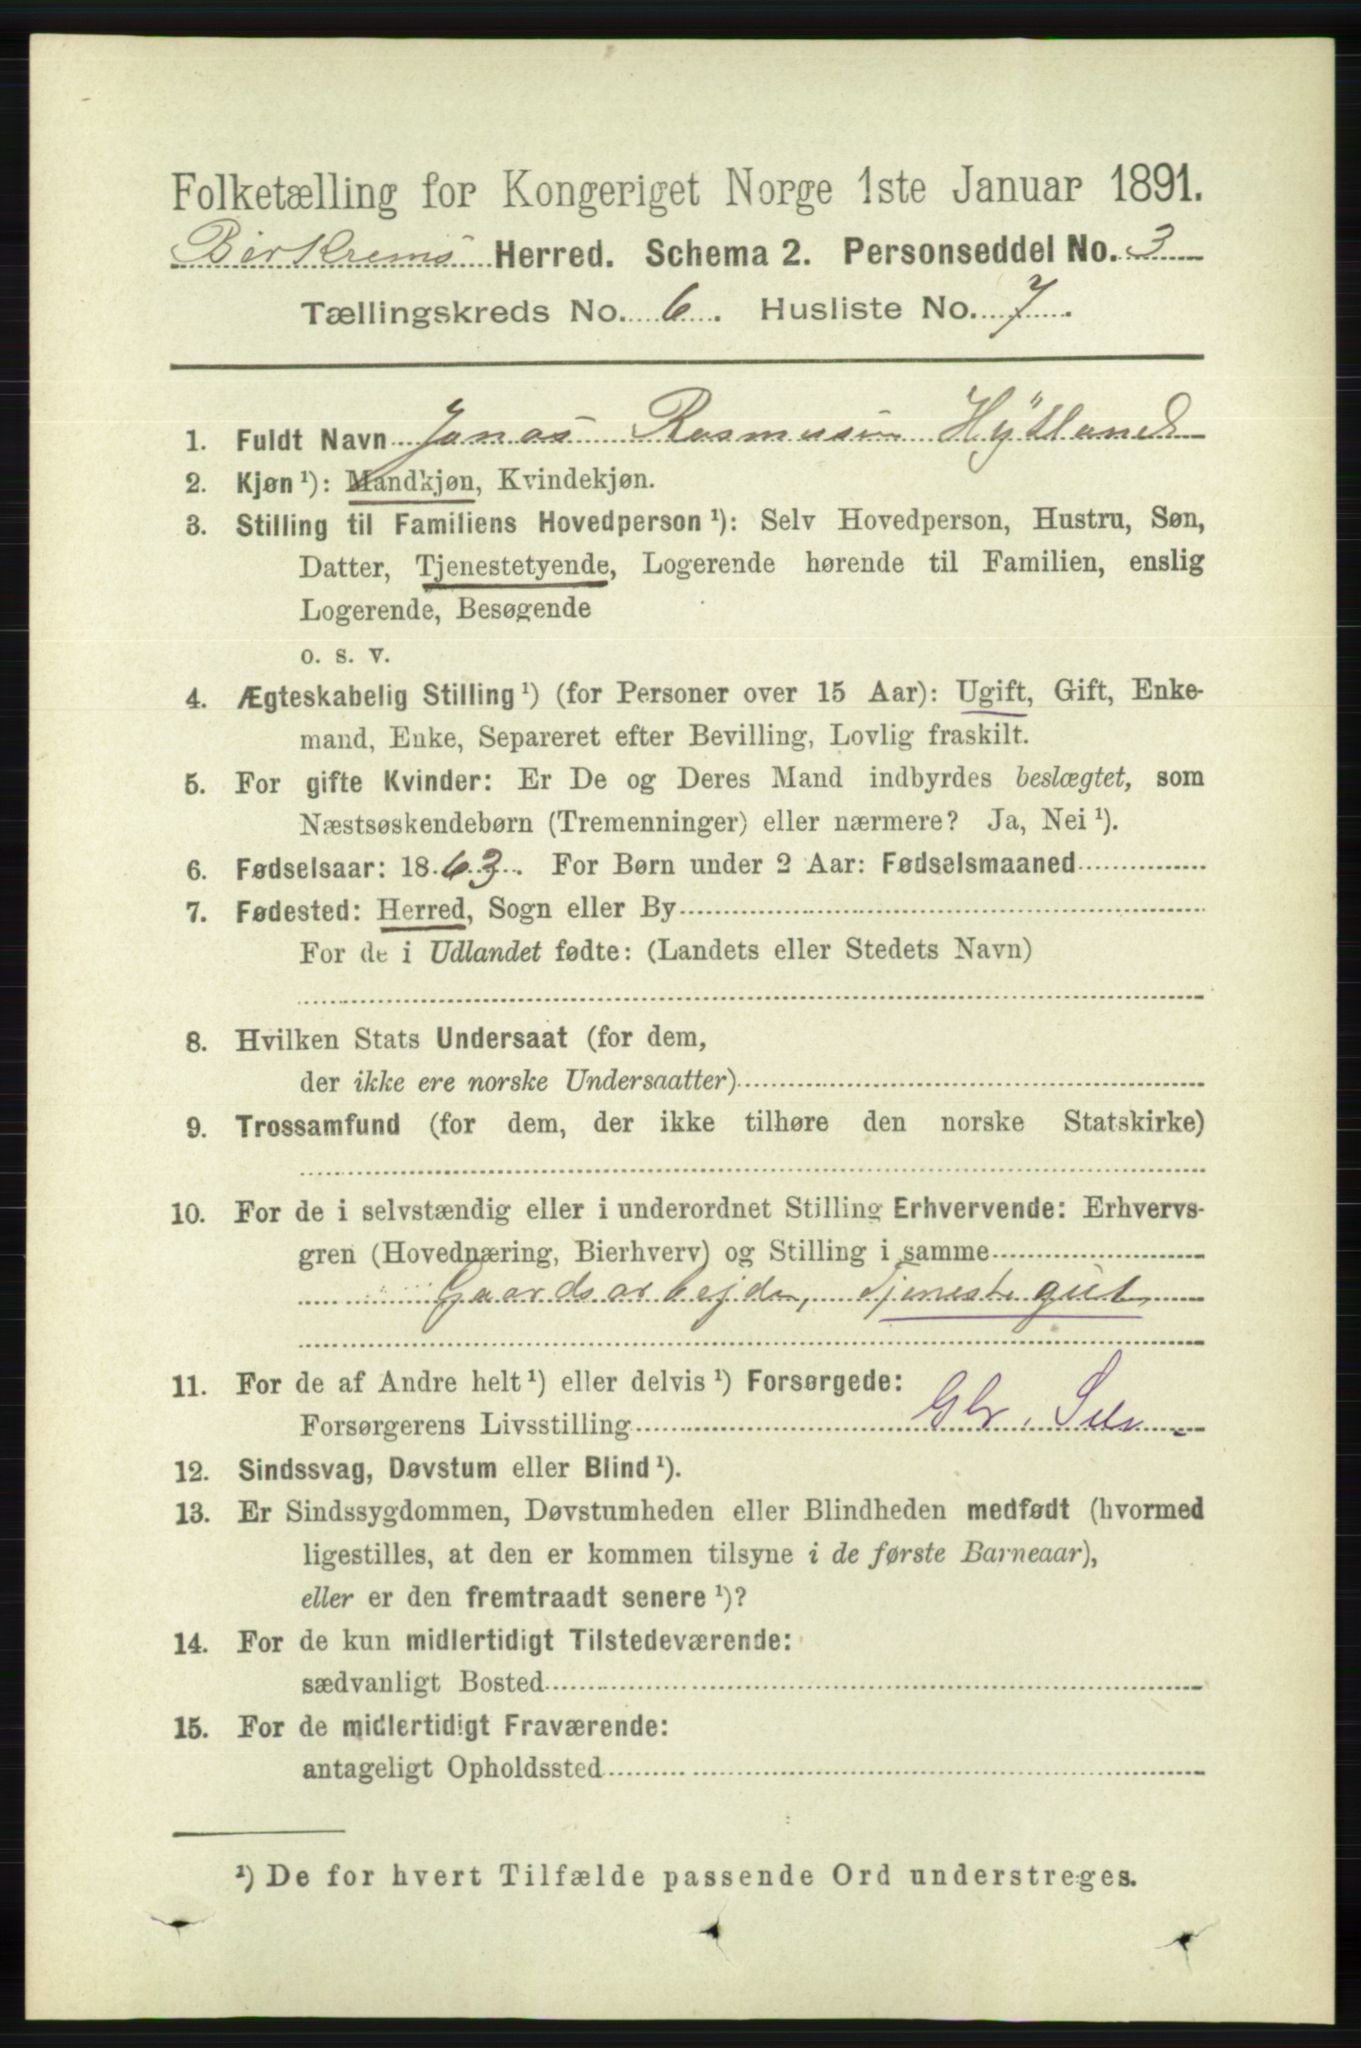 Folketælling for Kongeriget Norge 1ste Januar 1891.
Birkrems Herred. Schema 2. Personseddel No. 3
Tællingskreds No. 6. Husliste No. 7.
1. Fuldt Navn Jonas Rasmusen Hÿtland
2. Kjøn ¹): Mandkjøn, Kvindekjøn.
3. Stilling til Familiens Hovedperson ¹): Selv Hovedperson, Hustru, Søn,
Datter, Tjenestetyende, Logerende hørende til Familien, enslig
Logerende, Besøgende
o. s. v.
4. Ægteskabelig Stilling ¹) (for Personer over 15 Aar): Ugift, Gift, Enke-
mand, Enke, Separeret efter Bevilling, Lovlig fraskilt.
5. For gifte Kvinder: Er De og Deres Mand indbyrdes beslægtet, som
Næstsøskendebørn (Tremenninger) eller nærmere? Ja, Nei ¹).
6. Fødselsaar: 1863. For Børn under 2 Aar: Fødselsmaaned
7. Fødested: Herred, Sogn eller By
For de i Udlandet fødte: (Landets eller Stedets Navn)
8. Hvilken Stats Undersaat (for dem,
der ikke ere norske Undersaatter)
9. Trossamfund (for dem, der ikke tilhøre den norske Statskirke)
10. For de i selvstændig eller i underordnet Stilling Erhvervende: Erhvervs-
gren (Hovednæring, Bierhverv) og Stilling i samme
Gaardsarbejder, tjenestegut,
11. For de af Andre helt ¹) eller delvis ¹) Forsørgede:
Forsørgerens Livsstilling Gbr. Selv.
12. Sindssvag, Døvstum eller Blind ¹).
13. Er Sindssygdommen, Døvstumheden eller Blindheden medfødt (hvormed
ligestilles, at den er kommen tilsyne i de første Barneaar),
eller er den fremtraadt senere ¹)?
14. For de kun midlertidigt Tilstedeværende:
sædvanligt Bosted
15. For de midlertidigt Fraværende:
antageligt Opholdssted
¹) De for hvert Tilfælde passende Ord understreges.